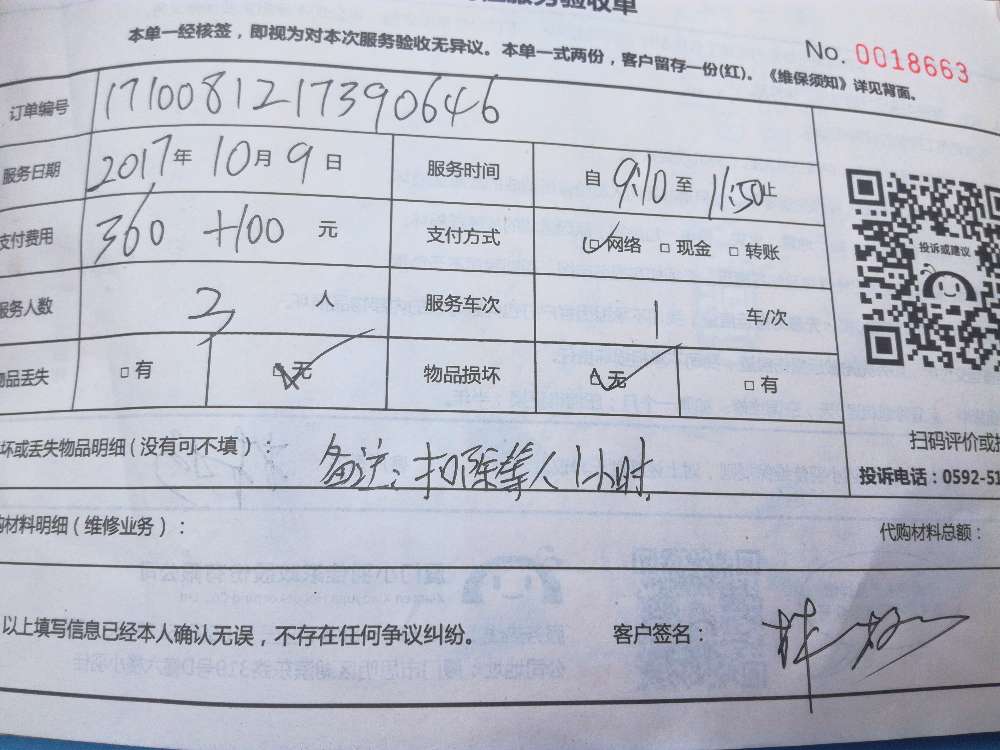 服务验收单
本单一经核签，即视为对本次服务验收无异议。本单一式两份，客户留存一份(红)。《维保须知》详见背面。
No. 0018663
订单编号 1710081217390646
服务日期 2017年 10月 9日 服务时间 自 9:10 至 11:50止
支付费用 360 +100 元 支付方式 □网络 □现金 □转账
服务人数 2 人 服务车次 1 车/次
物品丢失 □有 □无 物品损坏 □无 □有
投诉或建议
坏或丢失物品明细（没有可不填）： 备注：扣除等人1小时
扫码评价或投
投诉电话：0592-51
购材料明细（维修业务）： 代购材料总额：
以上填写信息已经本人确认无误，不存在任何争议纠纷。 客户签名：